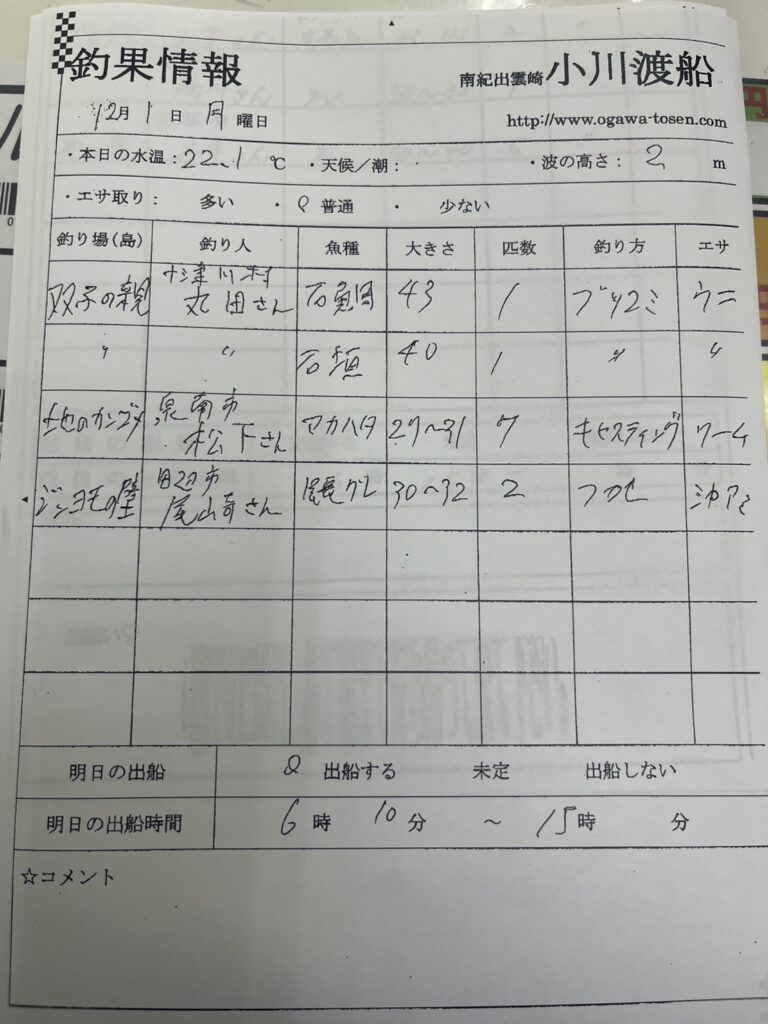 釣果情報 南紀出雲崎 小川渡船
12月 1日 月曜日 http://www.ogawa-tosen.com
・本日の水温：22.1℃ ・天候／潮： ・波の高さ： 2 m
・エサ取り： 多い ・ 普通 ・ 少ない
釣り場(島) 釣り人 魚種 大きさ 匹数 釣り方 エサ
双子の親 十津川村 丸田さん 石鯛 43 1 ブッコミ ウニ
〃 〃 石垣 40 1 〃 〃
地のカンヅメ 泉南市 松下さん マカハタ 27〜31 7 キャスティング ワーム
の壁 田辺市 尾崎さん 尾長グレ 30〜32 2 フカセ
明日の出船 出船する 未定 出船しない
明日の出船時間 6時 10分 〜 15時 分
☆コメント